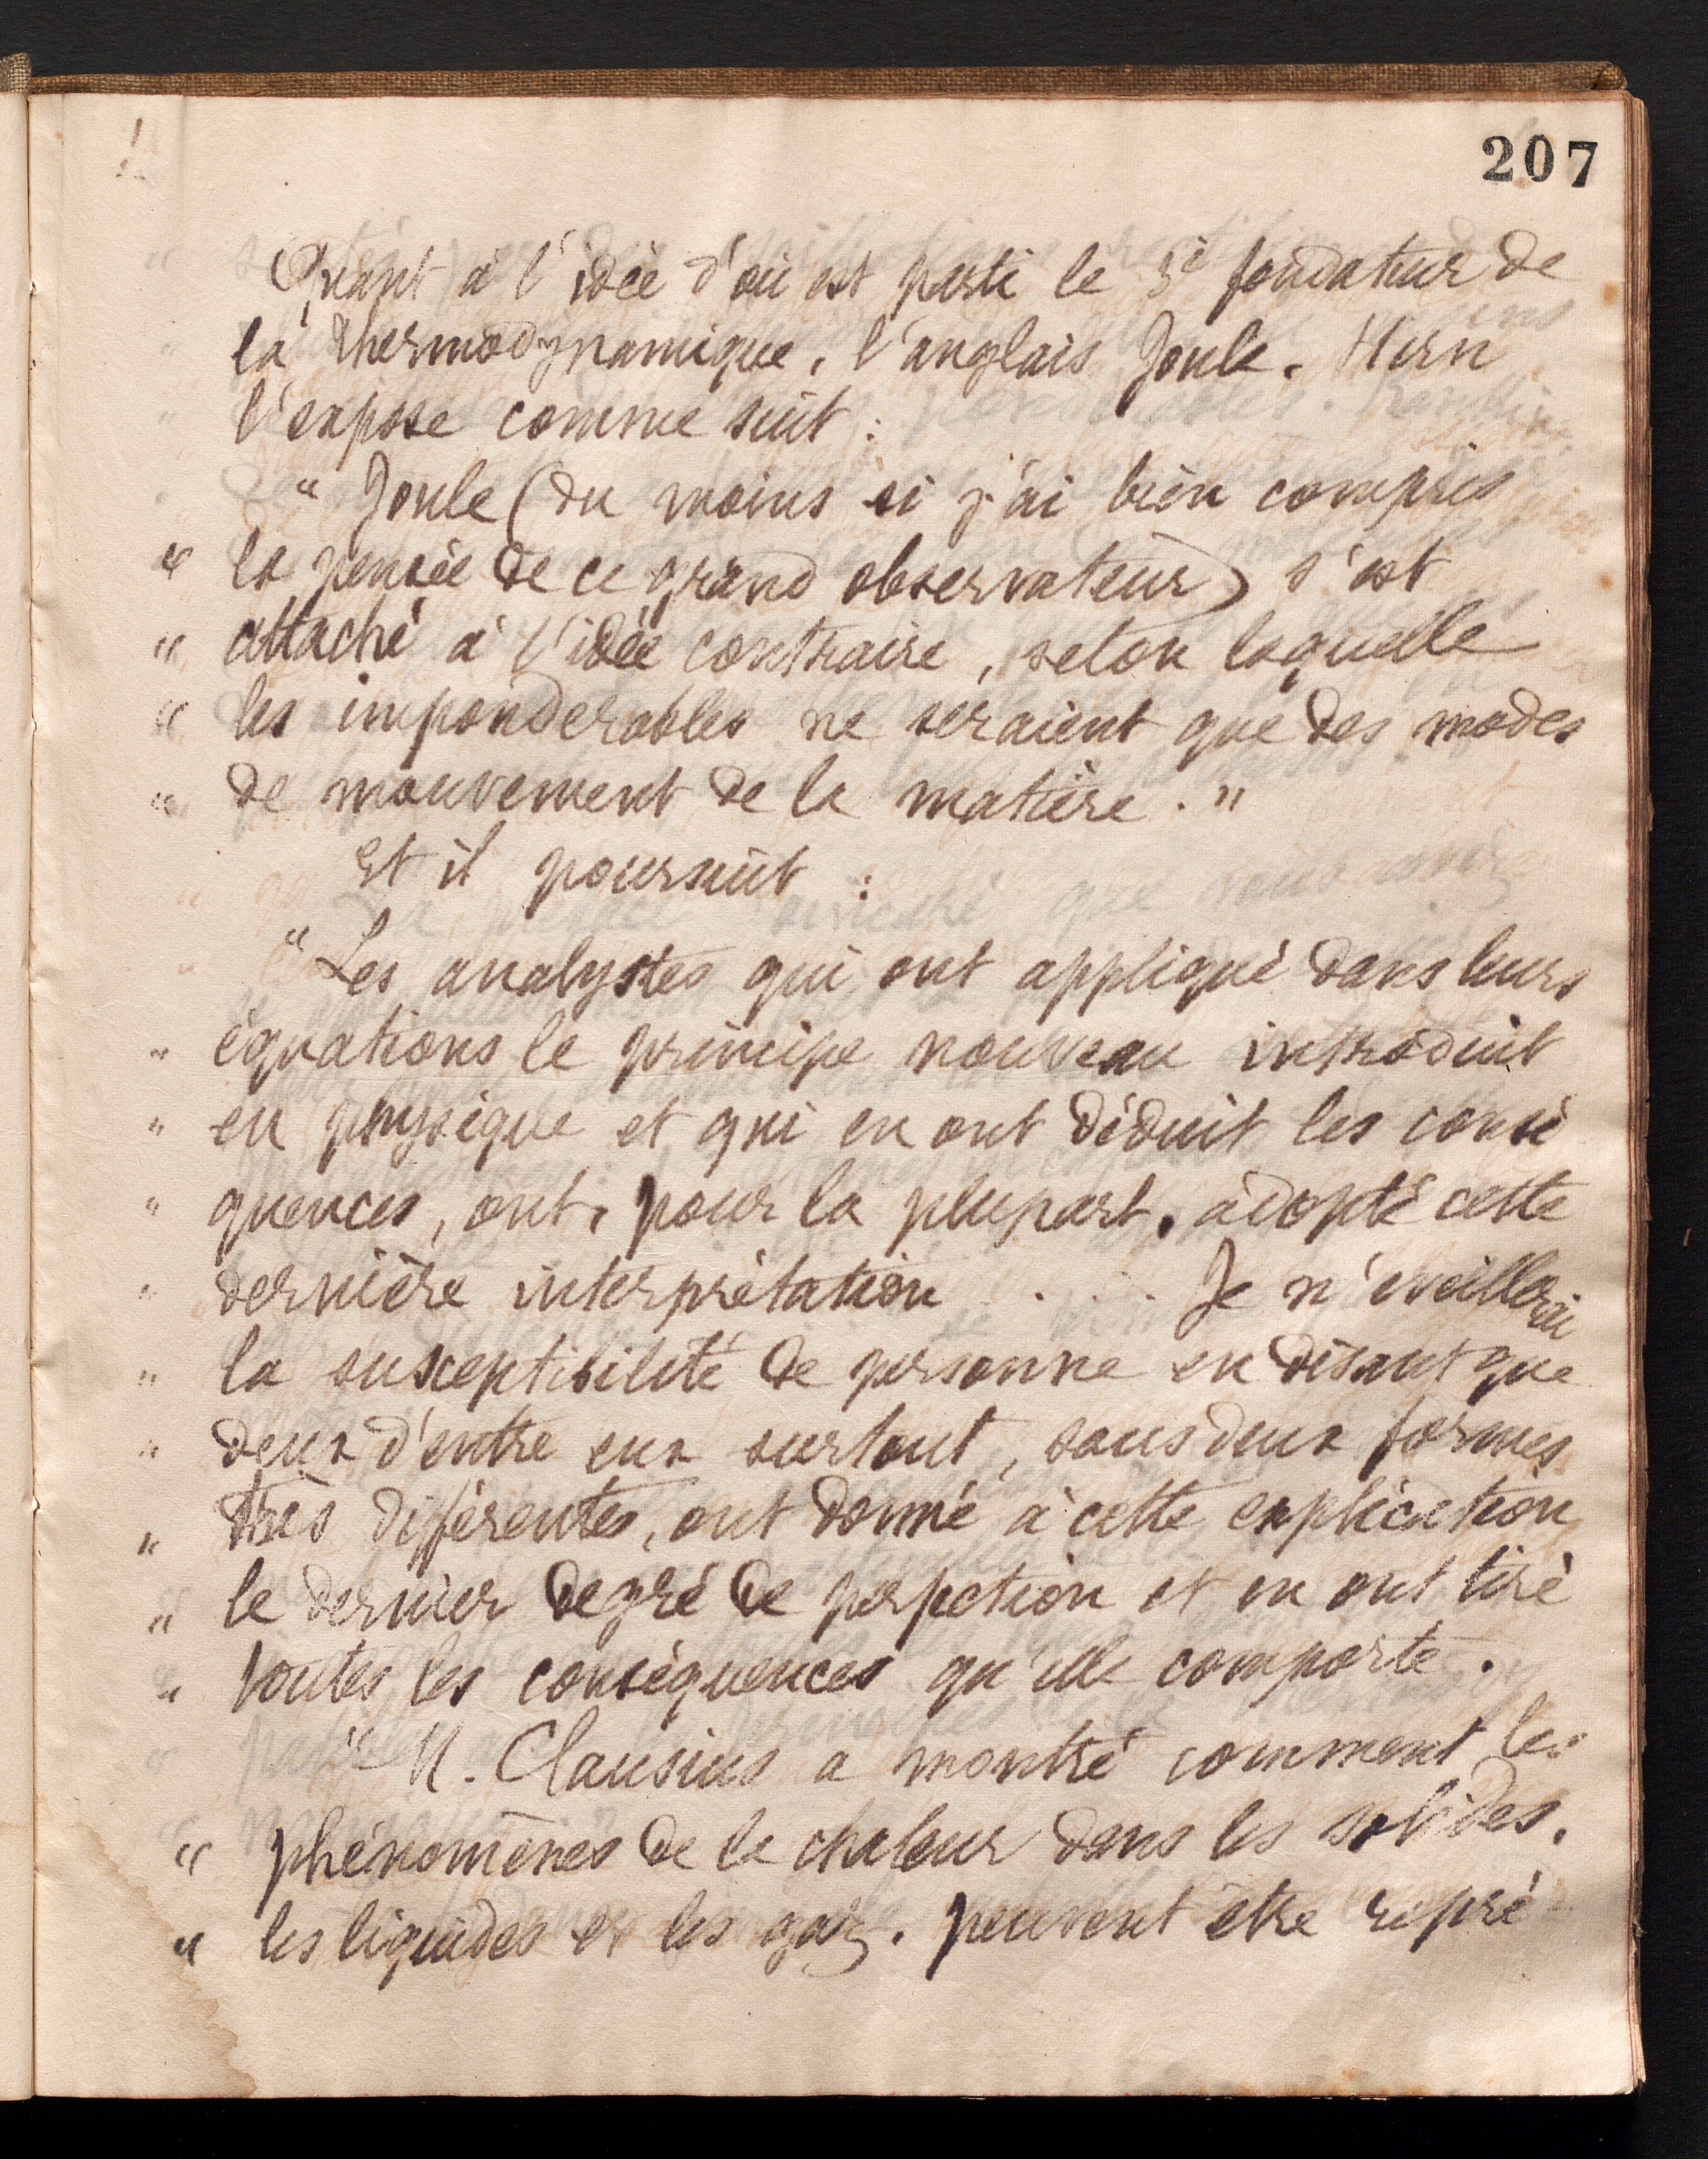 207
Quant à l'idée d'où est parti le 3è fondateur de
la thermodynamique, l'anglais Joule, Hirn
l'expose comme suit :
" Joule (du moins si j'ai bien compris
" la pensée de ce grand observateur) s'est
" attaché à l'idée contraire, selon laquelle
" les imponderables ne seraient que des modes
" de mouvement de la matière. "
Et il poursuit :
" Les analystes qui ont appliqué dans leurs
" équations le principe nouveau introduit
" en physique et qui en ont déduit les consé
" quences, ont, pour la plupart, adopté cette
" dernière interprétation . . . Je n'éveillerai
" la susceptibilité de personne en disant que
" deux d'entre eux surtout, sous deux formes
" très différentes, ont donné à cette explication
" le dernier degré de perfection et en ont tiré
" toutes les conséquences qu'elle comporte.
" M. Clausius a montré comment les
" phénomènes de la chaleur dans les solides,
" les liquides et les gaz, peuvent être repré-